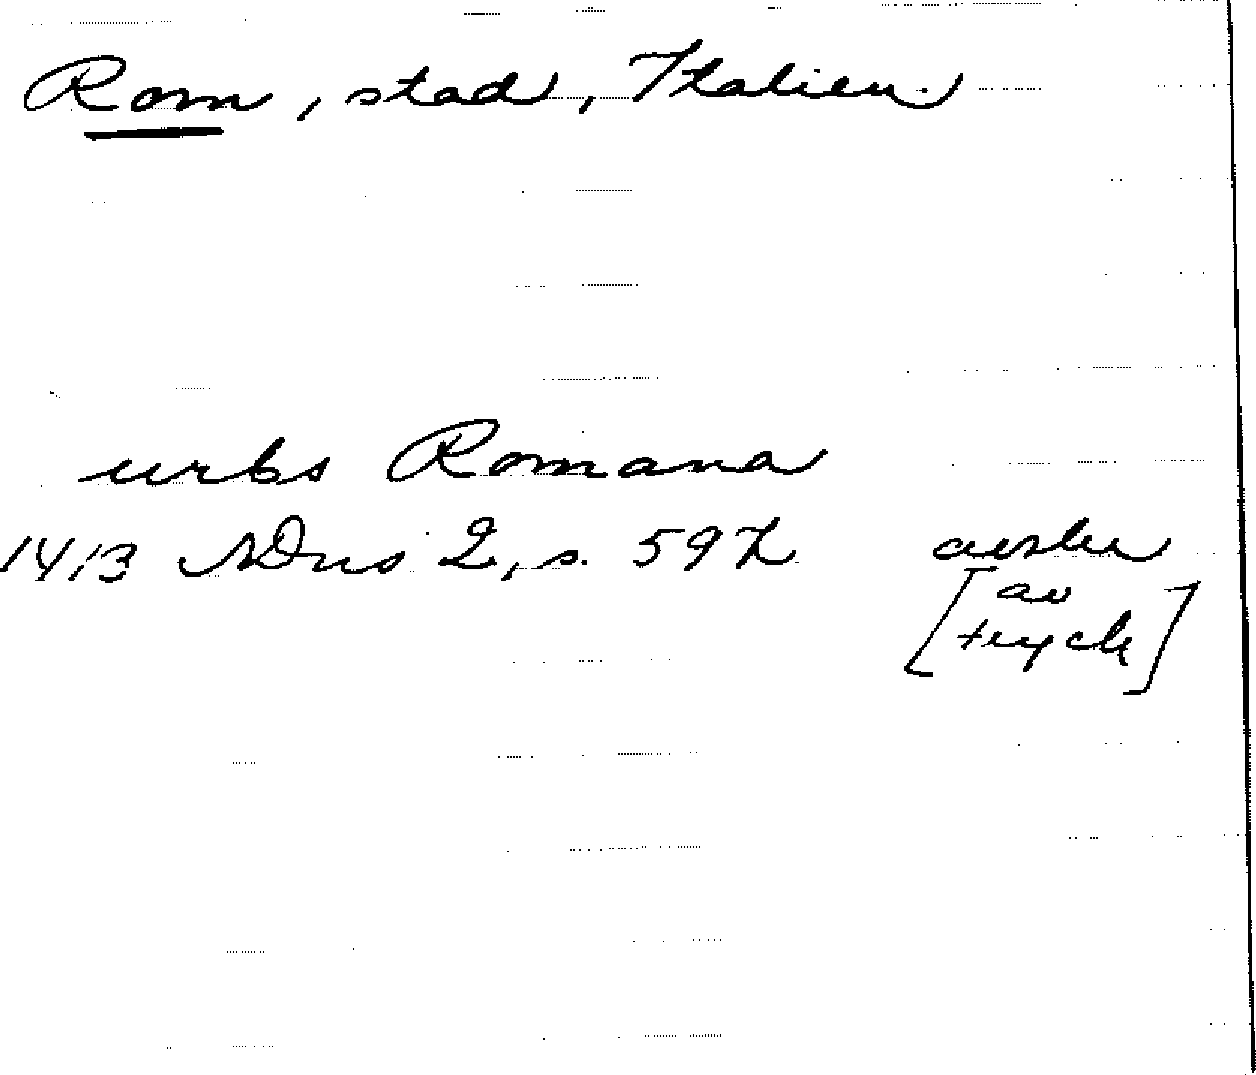 Rom, stad, Italien
urbs Romana
1413 SDns 2, s. 592 avskr
[av
tryck]